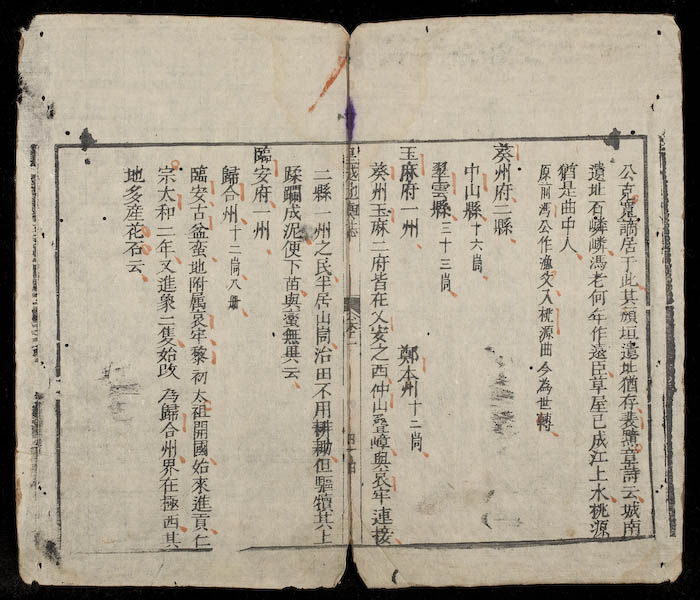 公克寬謫居于此其頹垣遺址猶存裴 章詩云城南
遺址石嶙嶙馮老何年作逐臣草屋已成江上水桃源
猶是曲中人
原前馮公作漁父入桃源曲今為世轉
葵州府二縣
中山縣十六崗
翠雲縣三十三崗
玉麻府一州 鄭本州十二崗
葵州玉麻二府皆在乂安之西仲山疊嶂與哀牢連接
皇越地輿誌
四十四
二縣一州之民半居山崗治田不用耕耡但驅犢其上
蹂躙成泥便下苗與蠻無異云
臨安府一州
歸合州十二崗八册
臨安古盆蛮地附属哀牢黎初太祖開國始來進貢仁
宗太和二年又進象二隻始改為歸合州界在極西其
地多産花石云